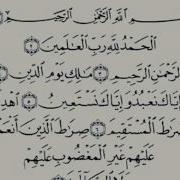 سْمِ ٱللَّهِ ٱلرَّحْمَـٰنِ ٱلرَّحِيمِ
١ ٱلْحَمْدُ لِلَّهِ رَبِّ ٱلْعَـٰلَمِينَ ٢
ٱلرَّحْمَـٰنِ ٱلرَّحِيمِ ٣ مَـٰلِكِ يَوْمِ ٱلدِّينِ ٤
إِيَّاكَ نَعْبُدُ وَإِيَّاكَ نَسْتَعِينُ ٥ ٱهْدِ
صِرَٰطَ ٱلْمُسْتَقِيمَ ٦ صِرَٰطَ ٱلَّذِينَ أَنْعَمْ
عَلَيْهِمْ غَيْرِ ٱلْمَغْضُوبِ عَلَيْهِمْ